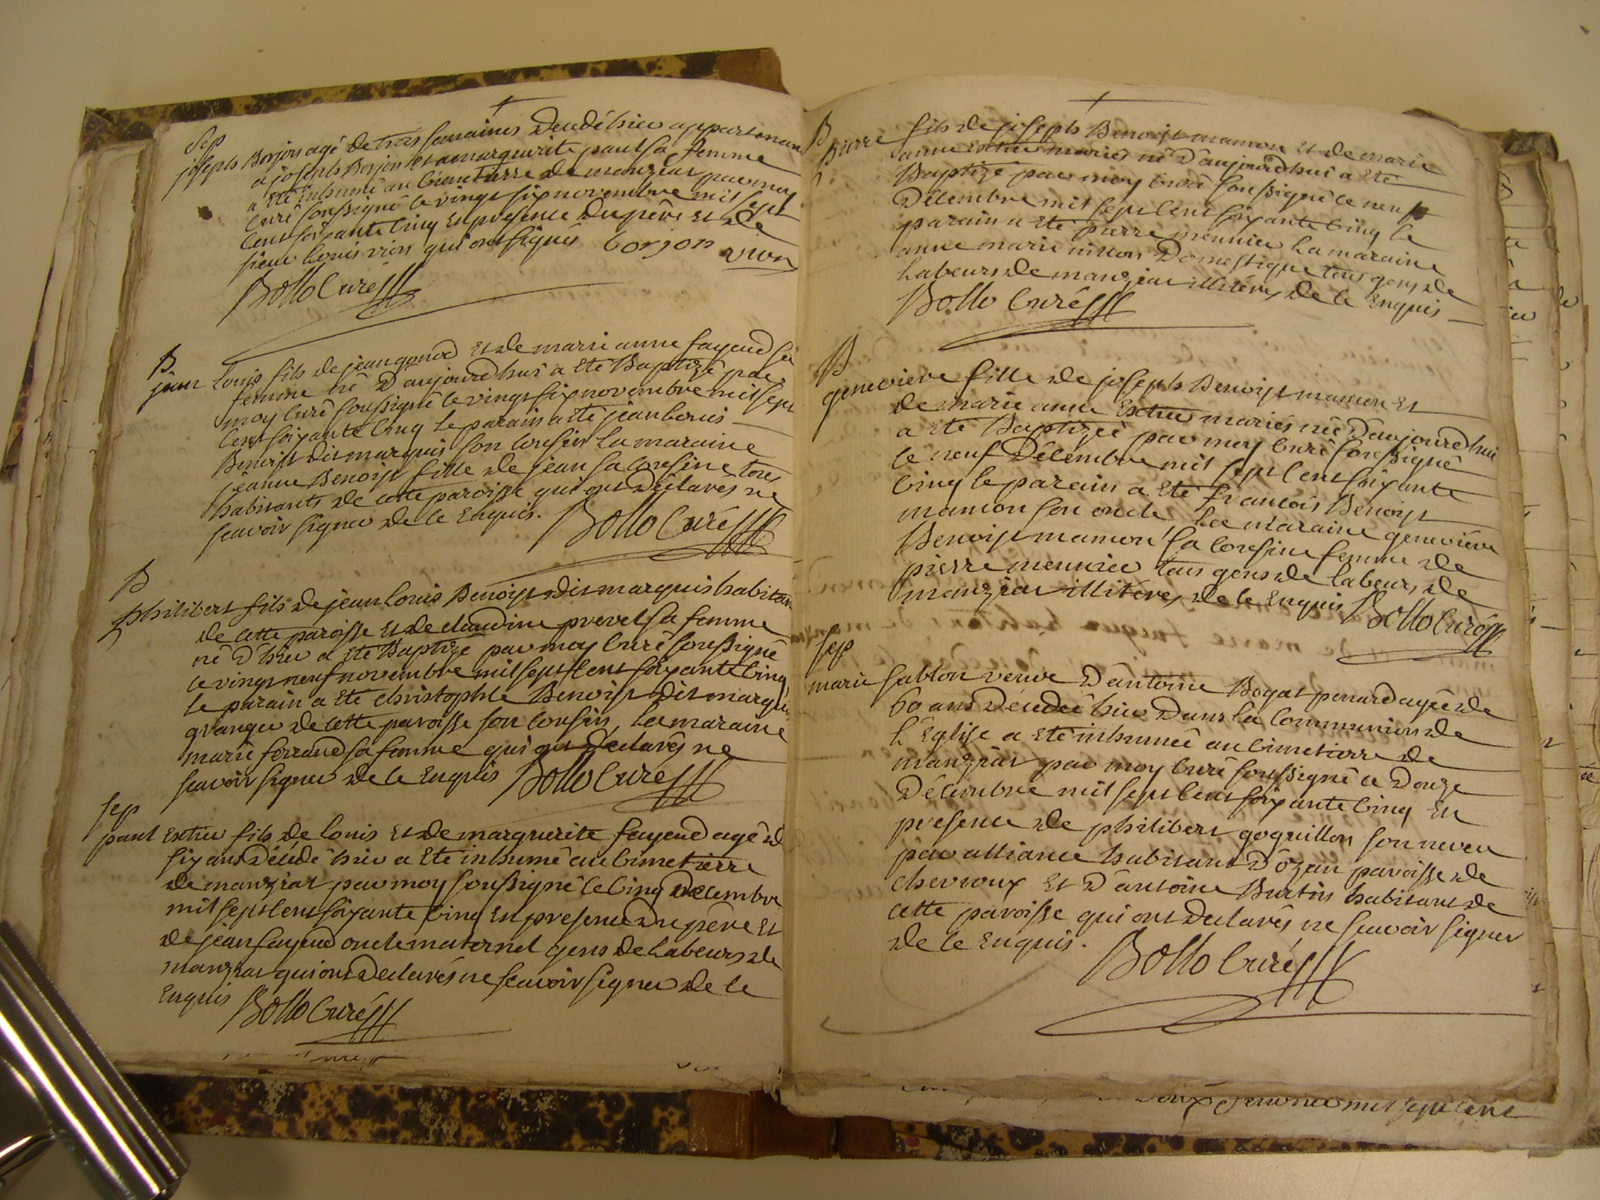 Sep
joseph Borjon agé de trois semaines décédé hier appartenant
a joseph Borjon et a marguerite paul sa femme
a été inhumé au cimetierre de manziat par moy
curé soussigné le vingt six novembre mil sept
cent soixante cinq en presence du père et de
sieur louis vion qui ont signés borjon vion
Bollo Curé
B
jean louis fils de jean gonod et de marie anne fayend sa
femme né d'aujourd'hui a été Baptizé par
moy curé soussigné le vingt six novembre mil sept
cent soixante cinq le parain a été jean louis
Benoist dit marquis son cousin la maraine
jeanne Benoist fille de jean sa cousine tous
habitants de cette paroisse qui ont déclarés ne
scavoir signer de ce Enquis. Bollo Curé
B
philibert fils de jean louis Benoist dit marquis habitant
de cette paroisse et de claudine prevel sa femme
né d'hier a été Baptizé par moy curé soussigné
le vingt neuf novembre mil sept cent soixante cinq
le parain a été christophle Benoist dit marquis
granger de cette paroisse son cousin, la maraine
marie ferrand sa femme qui ont declarés ne
scavoir signer de ce Enquis Bollo Curé
Sep
paul Extier fils de louis et de marguerite fayend agé de
six ans décédé hier a été inhumé au cimetierre
de manziat par moy soussigné le cinq décembre
mil sept cent soixante cinq en presence du père et
de jean fayend oncle maternel gens de labeurs de
manziat qui ont declarés ne scavoir signer de ce
Enquis Bollo Curé
B
pierre fils de joseph Benoist manion et de marie
anne Extier mariés né d'aujourd'hui a été
Baptizé par moy curé soussigné le neuf
décembre mil sept cent soixante cinq le
parain a été pierre mennier la maraine
anne marie domestique tous gens de
labeurs de manziat illiterés de ce Enquis
Bollo Curé
B
genevieve fille de joseph Benoist manion et
de marie anne Extier mariés née d'aujourd'hui
a été Baptizée par moy curé soussigné
le neuf décembre mil sept cent soixante
cinq le parain a été francois Benoist
manion son oncle la maraine genevieve
Benoist manion sa cousine femme de
pierre mennier tous gens de labeurs de
manziat illiterés de ce Enquis Bollo Curé
Sep
marie sablon veuve d'antoine Boyat penard agée de
60 ans décédée hier dans la communion de
l'Eglise a été inhumée au cimetierre de
manziat par moy curé soussigné ce douze
décembre mil sept cent soixante cinq en
presence de philibert goquillon son neveu
par alliance habitant d'ozan paroisse de
chevroux et d'antoine Burtin habitant de
cette paroisse qui ont declarés ne scavoir signer
de ce Enquis.
Bollo Curé
mil sept cent